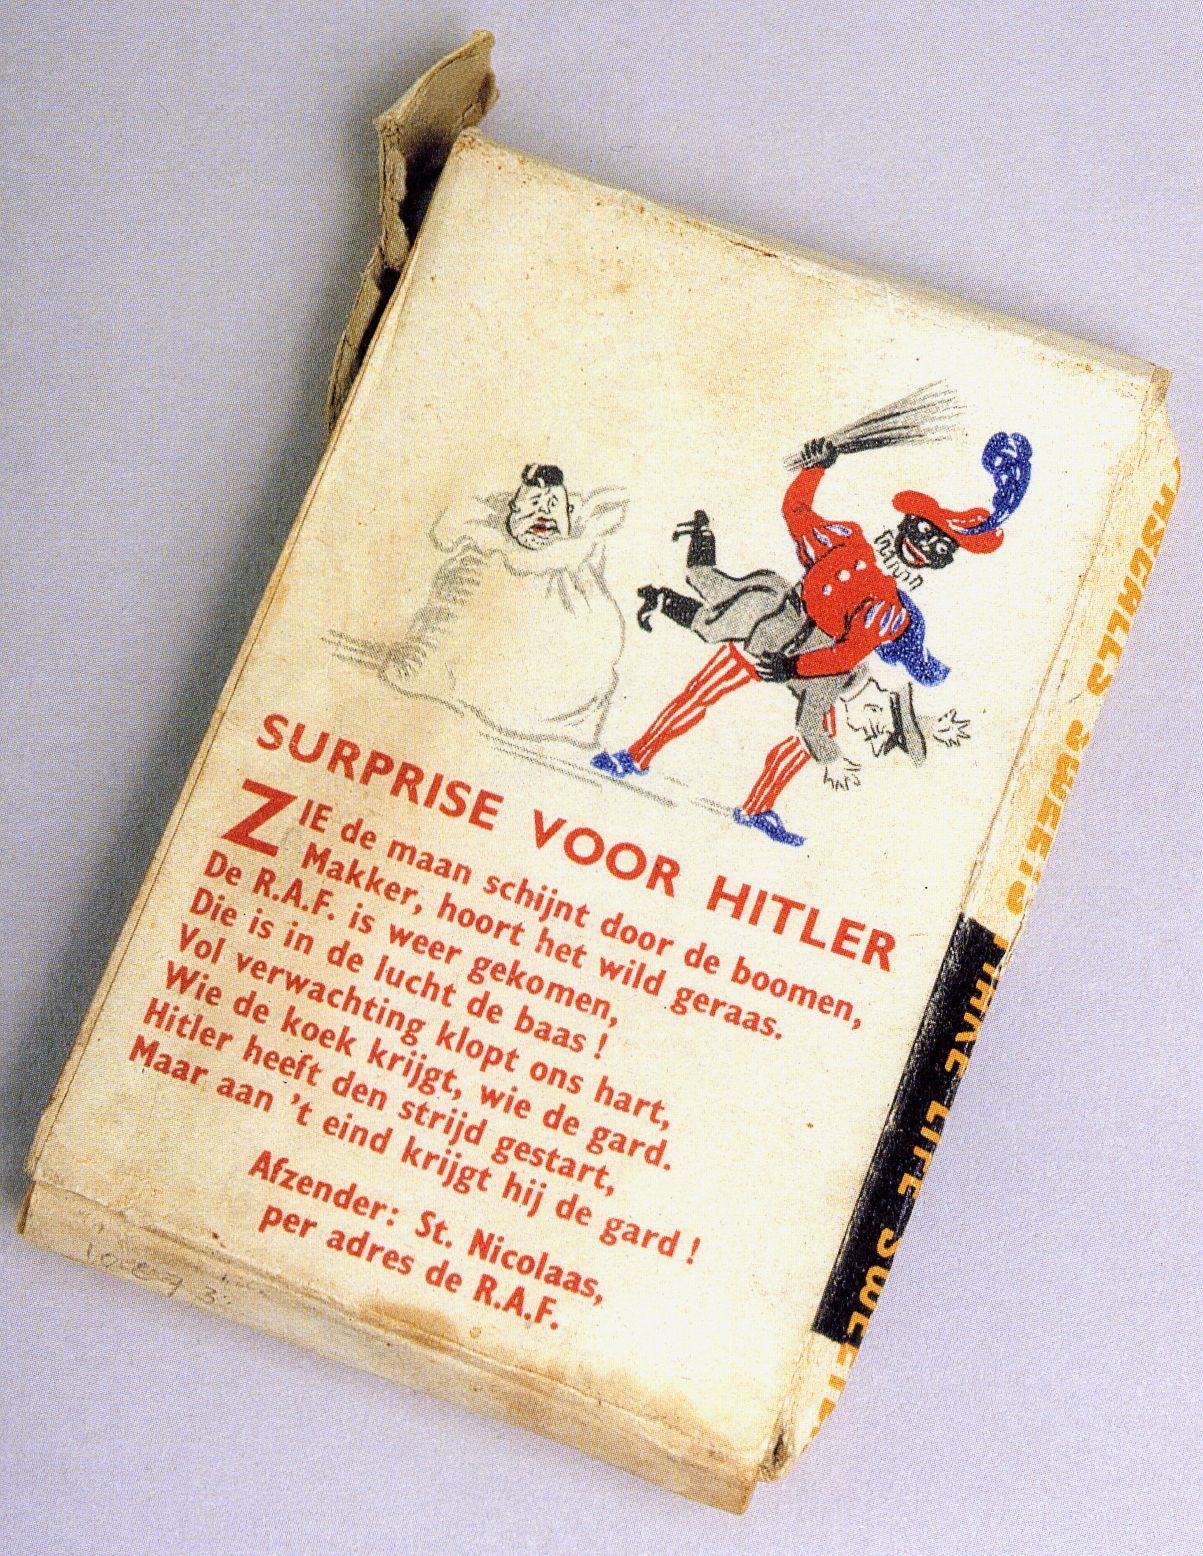 SURPRISE VOOR HITLER
ZIE de maan schijnt door de boomen,
Makker, hoort het wild geraas.
De R.A.F. is weer gekomen,
Die is in de lucht de baas!
Vol verwachting klopt ons hart,
Wie de koek krijgt, wie de gard.
Hitler heeft den strijd gestart,
Maar aan 't eind krijgt hij de gard!
Afzender: St. Nicolaas,
per adres de R.A.F.
SWEETS MAKE LIFE